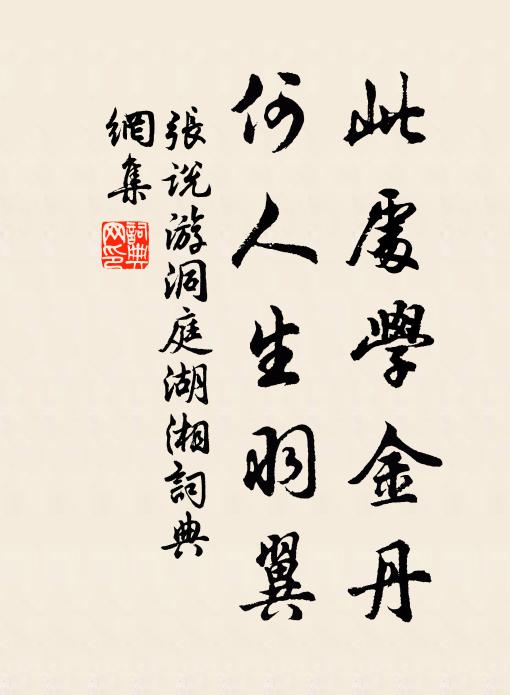 此處學金丹
何人生羽翼
張説游洞庭湖湘詞典
網集
詞典
网印